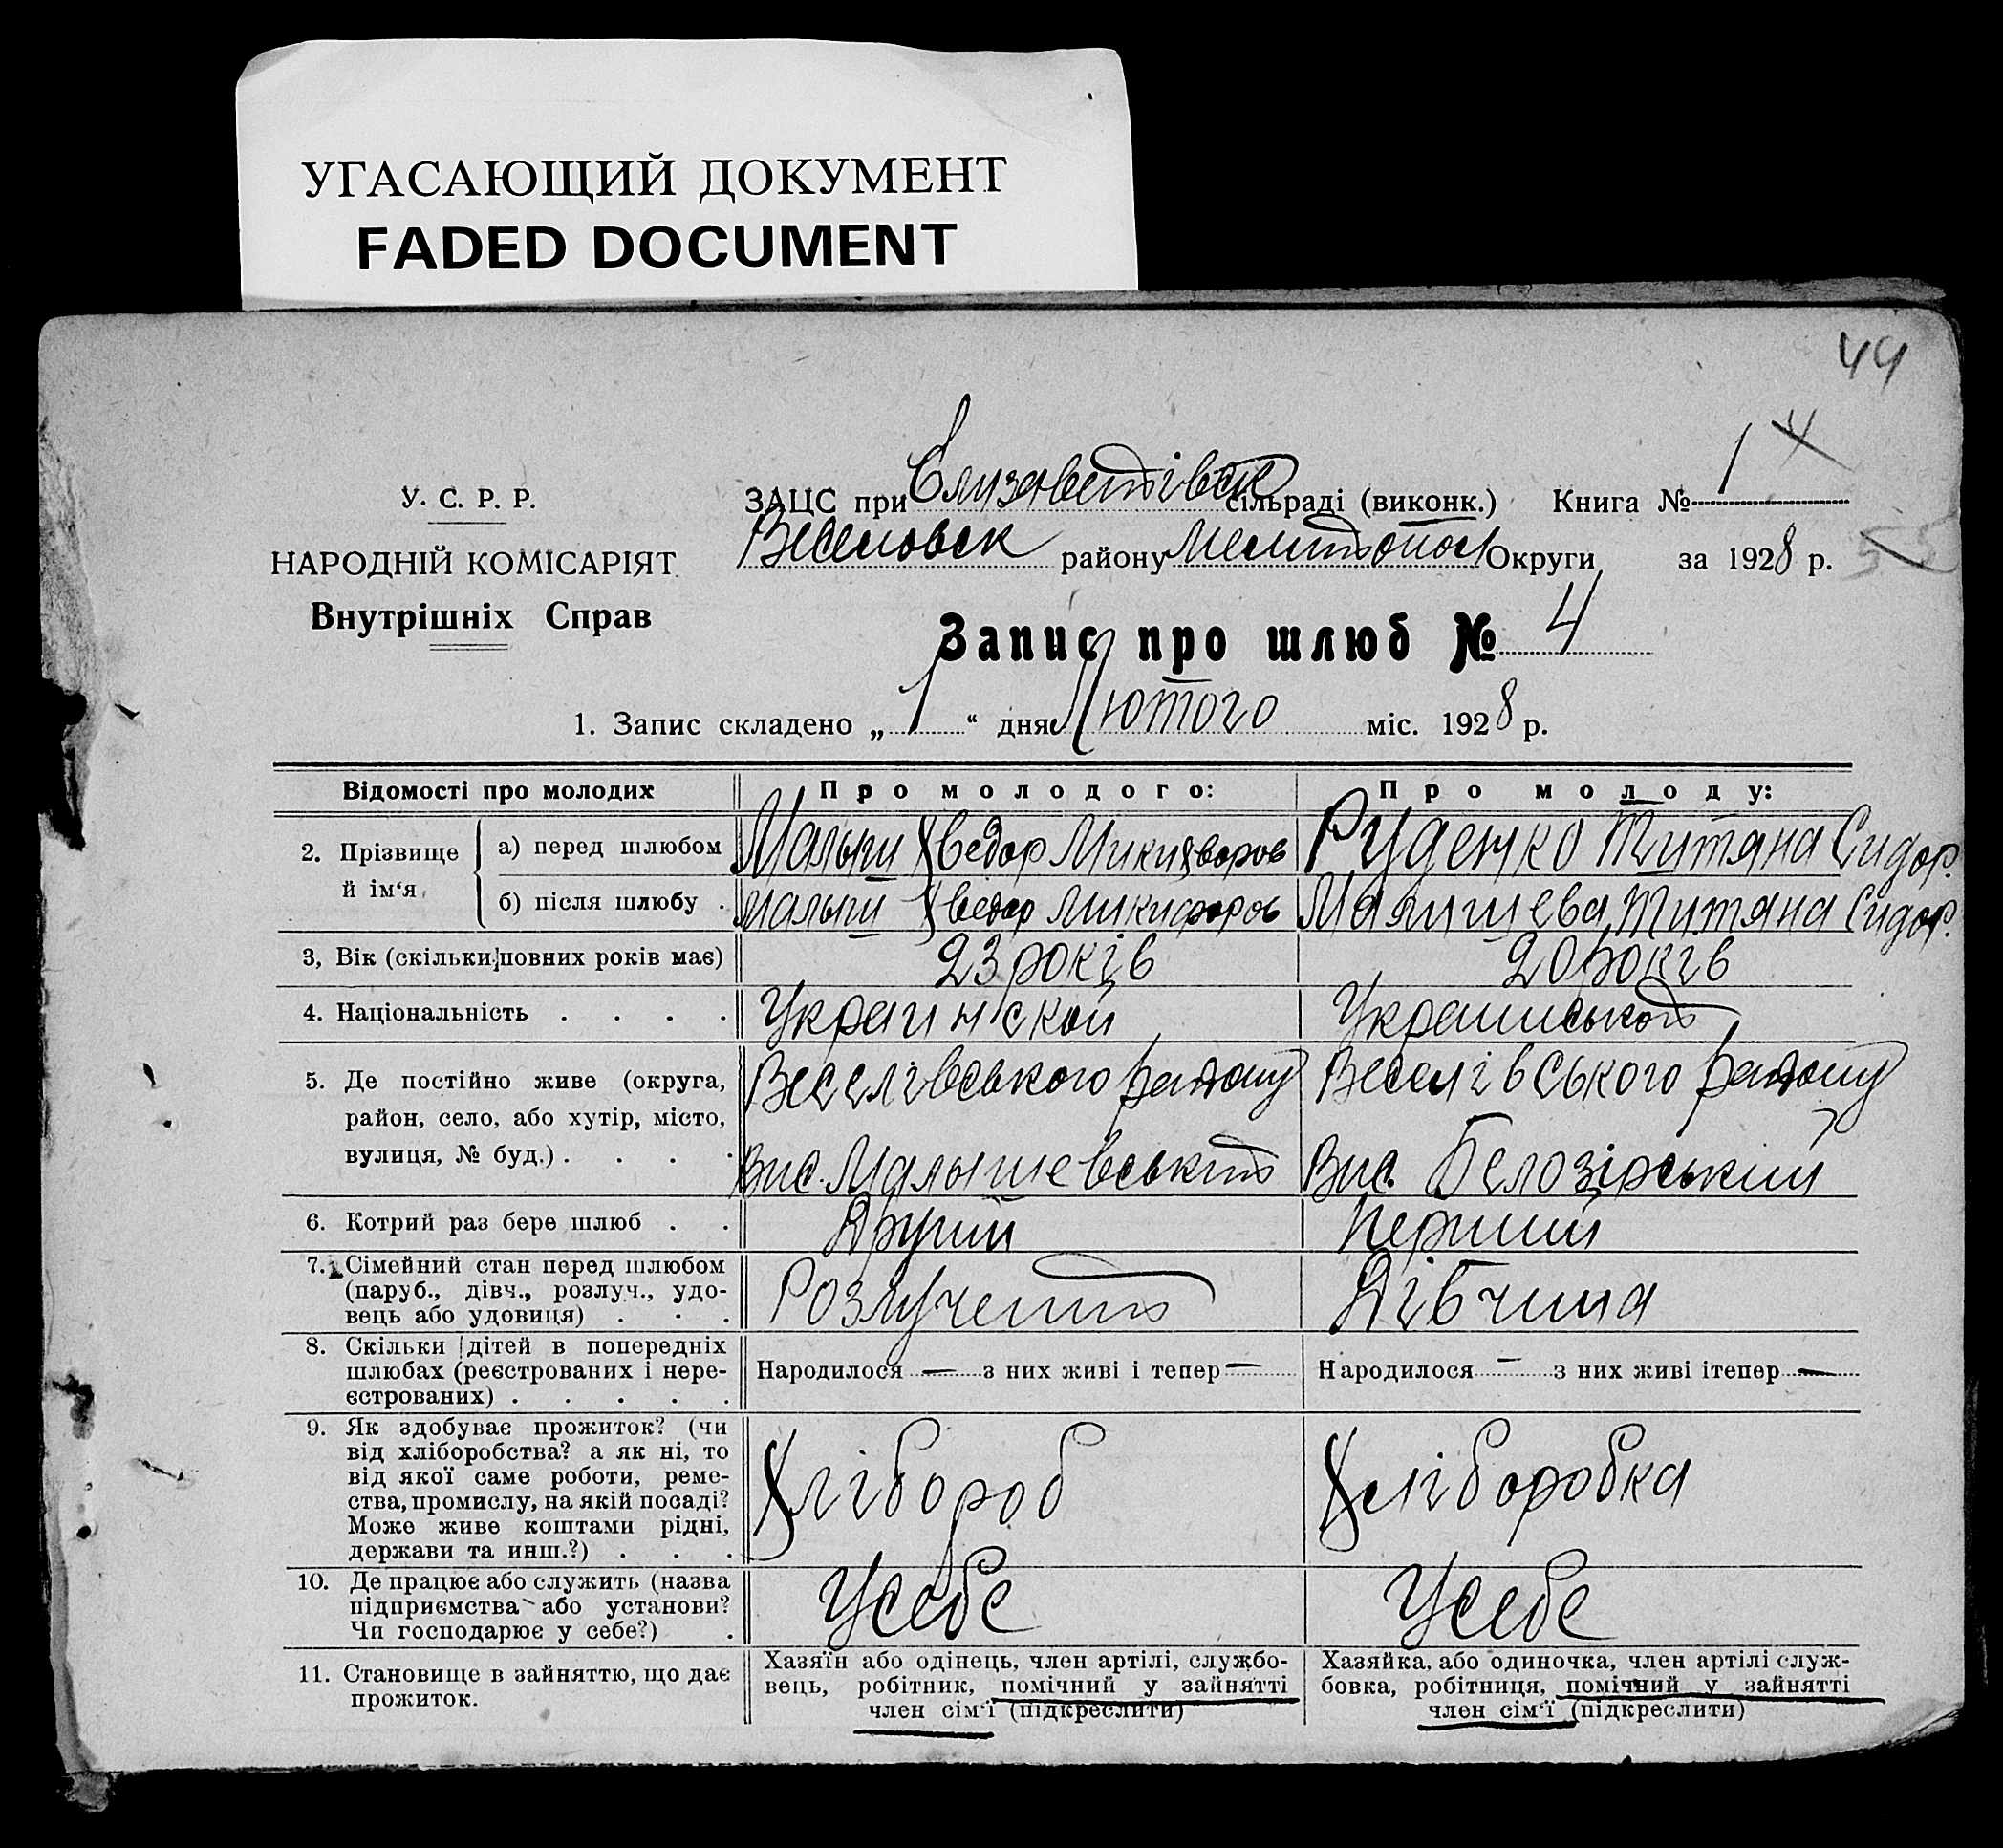 УГАСАЮЩИЙ ДОКУМЕНТ
FADED DOCUMENT
44
У. С. Р. Р.
НАРОДНІЙ КОМІСАРІЯТ
Внутрішніх Справ
ЗАЦС при Єлизаветівск сільраді (виконк.) Книга № 1 4
Веселовск району Мелитопол Округи за 1928 р. 55
Запис про шлюб № 4
1. Запис складено „ 1 “ дня Лютого міс. 1928 р.
Відомості про молодих
Про молодого:
Про молоду:
2. Прізвище й ім‘я
а) перед шлюбом
Малыш Хведор Микихворов
Руденко Титяна Сидор.
б) після шлюбу .
Малыш Хведор Микифоров
Малишева Титяна Сидор.
3, Вік (скільки повних років має)
23 років
20 років
4. Національність . . . .
Украинской
Украинської
5. Де постійно живе (округа,
район, село, або хутір, місто,
вулиця, № буд.) . . . .
Веселівського району
Вис. Малышевський
Веселівського району
Вис. Белозірський
6. Котрий раз бере шлюб . .
Другий
Перший
7. Сімейний стан перед шлюбом
(паруб., дівч., розлуч., удо-
вець або удовиця) . . .
Розлучений
Дівчина
8. Скільки дітей в попередніх
шлюбах (реєстрованих і нере-
єстрованих) . . . . .
Народилося — з них живі і тепер —
Народилося — з них живі ітепер —
9. Як здобуває прожиток? (чи
від хліборобства? а як ні, то
від якої саме роботи, реме-
ства, промислу, на якій посаді?
Може живе коштами рідні,
держави та инш.?) . . .
Хлібороб
Хліборобка
10. Де працює або служить (назва
підприємства або установи?
Чи господарює у себе?) .
Усебе
Усебе
11. Становище в зайняттю, що дає
прожиток.
Хазяїн або одінець, член артілі, службо-
вець, робітник, помічний у зайнятті
член сім‘ї (підкреслити)
Хазяйка, або одиночка, член артілі служ-
бовка, робітниця, помічний у зайнятті
член сім‘ї (підкреслити)